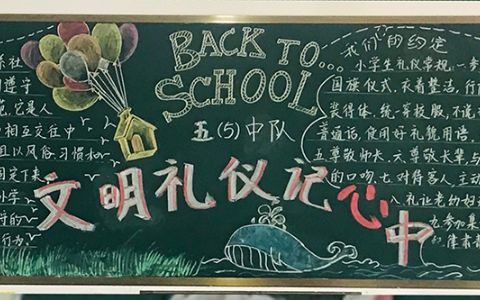 BACK TO...
SCHOOL
五(5)中队
文明礼仪记心中
乐社
遵守
范,它是人
相互交往中
且以风俗、习惯和
固定下来
小学
行为
我们的约定
小学生礼仪常规,一参
国旗仪式,衣着整洁,行
装得体,统穿校服,不说
普通话,使用好礼貌用语,
五.尊敬师长,六.尊敬长辈,与
的口吻,七.对待客人,主动
八.礼让老幼妇
九.参加集